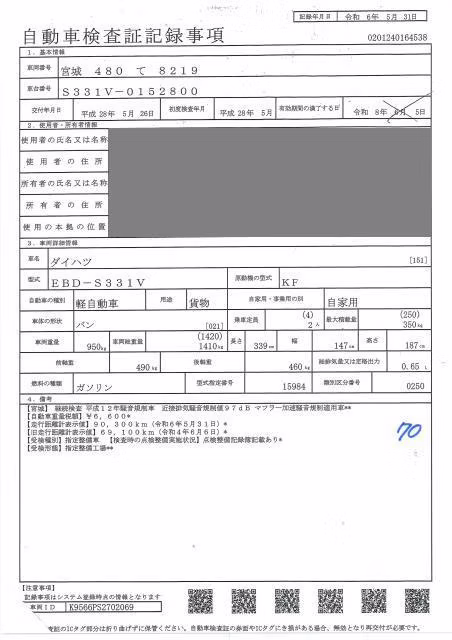 記録年月日 令和 6年 5月 31日
自動車検査証記録事項
0201240164538
1. 基本情報
車両番号 宮城 480 て 8219
車台番号 S331V-0152800
交付年月日 平成 28年 5月 26日 初度検査年月 平成 28年 5月 有効期間の満了する日 令和 8年 6月 5日
2. 使用者・所有者情報
使用者の氏名又は名称
使用者の住所
所有者の氏名又は名称
所有者の住所
使用の本拠の位置
3. 車両詳細情報
車名 ダイハツ [151]
型式 EBD-S331V 原動機の型式 KF
自動車の種別 軽自動車 用途 貨物 自家用・事業用の別 自家用
車体の形状 バン [021] 乗車定員 (4) 2人 最大積載量 (250) 350kg
車両重量 950kg 車両総重量 (1420) 1410kg 長さ 339cm 幅 147cm 高さ 187cm
前軸重 490kg 後軸重 460kg 総排気量又は定格出力 0.65 L
燃料の種類 ガソリン 型式指定番号 15984 類別区分番号 0250
4. 備考
【宮城】 継続検査 平成12年騒音規制車 近接排気騒音規制値97dB マフラー加速騒音規制適用車**
【自動車重量税額】¥6,600*
【走行距離計表示値】90,300km(令和6年5月31日)*
【旧走行距離計表示値】69,100km(令和4年6月6日)*
【受検種別】指定整備車 【検査時の点検整備実施状況】点検整備記録簿記載あり*
【受検形態】指定整備工場**
70
【注意事項】
記録事項はシステム登録時点の情報となります
車両ID K9566PS2702069
車検証のICタグ部分は折り曲げずに保管ください。自動車検査証の券面やICタグにき損がある場合、無効となり再交付が必要です。